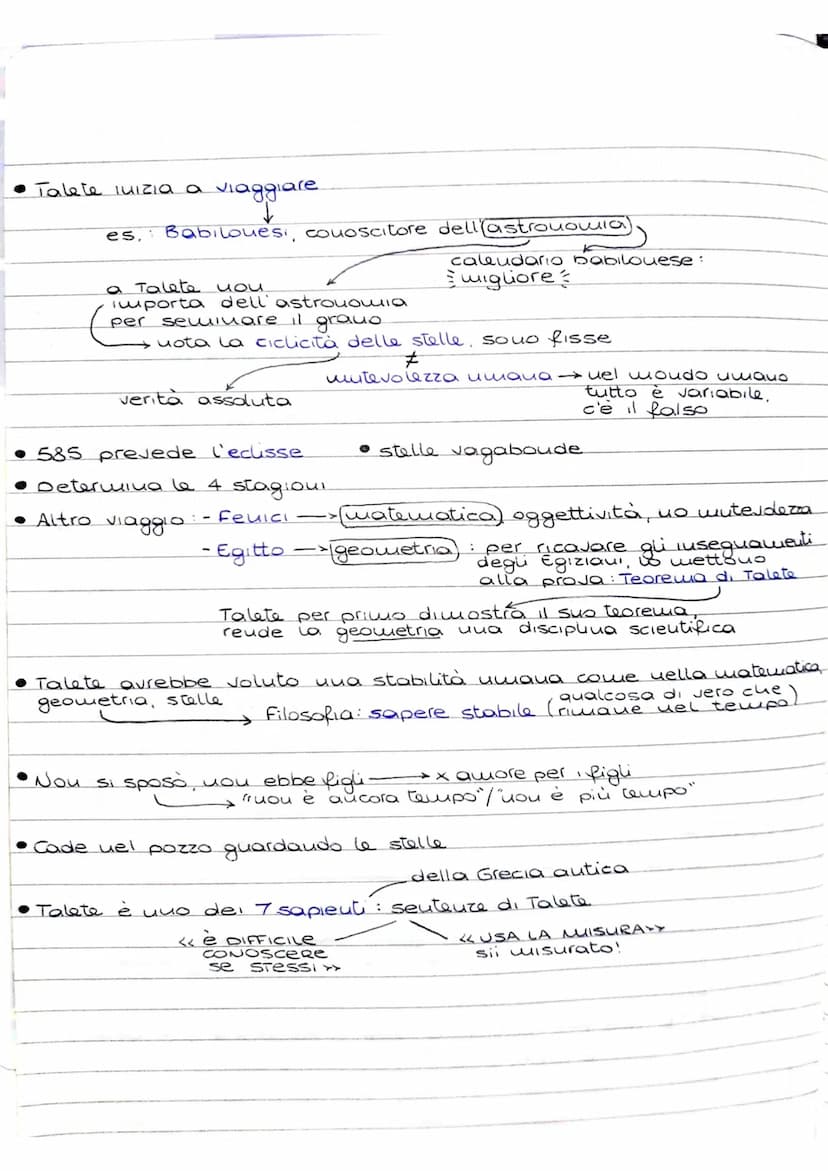 • Talete inizia a viaggiare
↓
es. : Babilonesi, conoscitore dell'astronomia
calendario babilonese:
migliore
a Talete non
importa dell'astronomia
per seminare il grano
→ nota la ciclicità delle stelle, sono fisse
≠
mutevolezza umana → nel mondo umano
tutto è variabile,
c'è il falso
verità assoluta
• 585 prevede l'eclisse • stelle vagabonde
• Determina le 4 stagioni
• Altro viaggio: - Fenici → matematica oggettività, no mutevolezza
- Egitto → geometria : per ricavare gli insegnamenti
degli Egiziani, lo mettono
alla prova: Teorema di Talete
Talete per primo dimostra il suo teorema,
rende la geometria una disciplina scientifica
• Talete avrebbe voluto una stabilità umana come nella matematica,
geometria, stelle
→ Filosofia: sapere stabile (qualcosa di vero che
rimane nel tempo)
• Non si sposò, non ebbe figli → x amore per i figli
→ "non è ancora tempo"/"non è più tempo"
• Cade nel pozzo guardando le stelle
della Grecia antica
• Talete è uno dei 7 sapienti : sentenze di Talete
<< è DIFFICILE
CONOSCERE
se STESSI >>
<< USA LA MISURA>>
sii misurato!